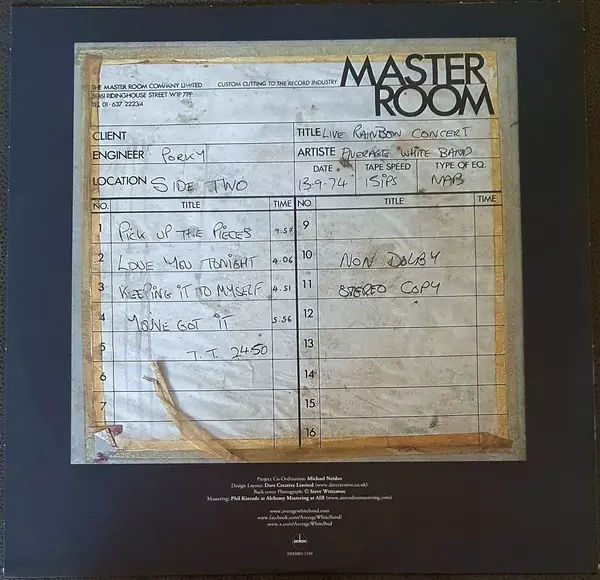 MASTER
ROOM
THE MASTER ROOM COMPANY LIMITED
CUSTOM CUTTING TO THE RECORD INDUSTRY
59/61 RIDINGHOUSE STREET W1P 7PP
TEL 01-637 2223/4
CLIENT
TITLE LIVE RAINBOW CONCERT
ENGINEER PORKY
ARTISTE AVERAGE WHITE BAND
LOCATION SIDE TWO
DATE 13-9-74 TAPE SPEED 15IPS TYPE OF EQ. NAB
NO. TITLE TIME NO. TITLE TIME
1 PICK UP THE PIECES 9.57 9
2 LOVE YOU TONIGHT 4.06 10 NON DOLBY
3 KEEPING IT TO MYSELF 4.51 11 STEREO COPY
4 YOU'VE GOT IT 5.56 12
5 T.T. 24.50 13
6 14
7 15
16
Project Co-Ordination: Michael Neidus
Design Layout: Dare Creative Limited
Back cover Photograph: © Steve Weitzman
Mastering: Phil Kinrade at Alchemy Mastering at AIR
www.averagewhiteband.com
www.facebook.com/AverageWhiteBand/
www.x.com/AverageWhiteBnd
DEMON